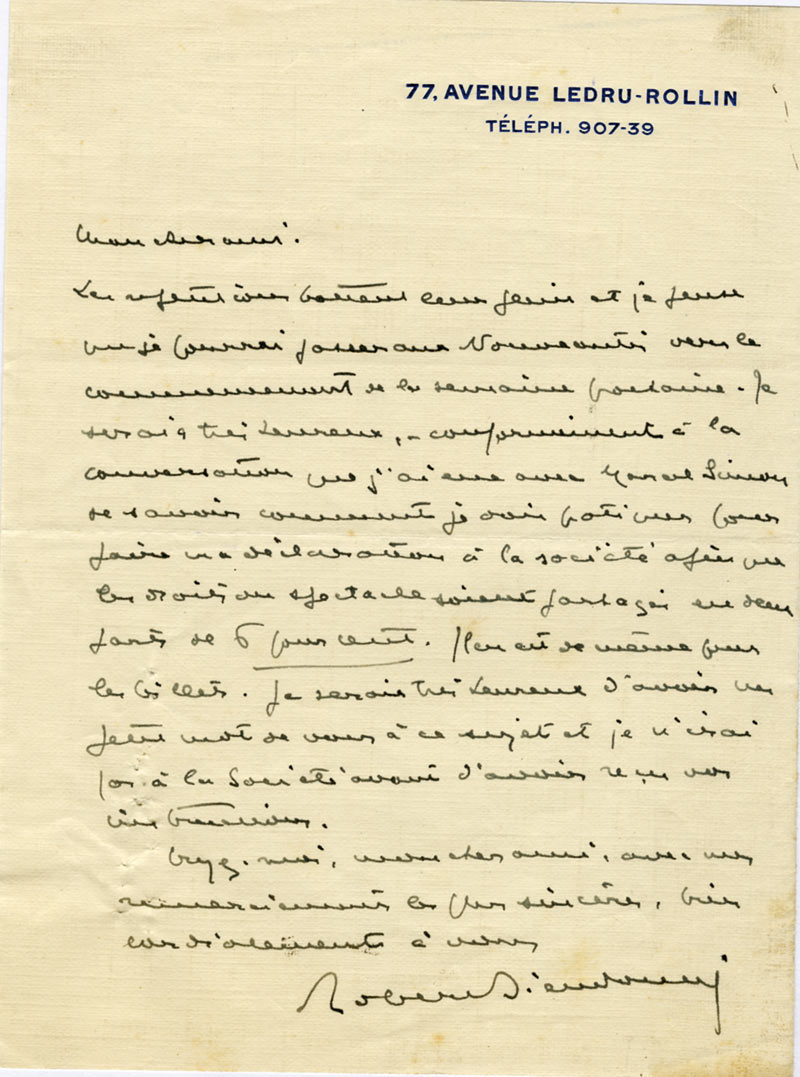 77, AVENUE LEDRU-ROLLIN
TÉLÉPH. 907-39
Mon cher ami.
Les répétitions battent leur plein et je pense
que je pourrai passer aux Nouveautés vers le
commencement de la semaine prochaine. Je
serais très heureux, - conformément à la
conversation que j'ai eue avec Marcel Simon
de savoir comment je dois pour
faire ma déclaration à la société afin que
les droits du spectacle soient partagés en deux
parts de 6 pour cent. Il en est de même pour
les billets. Je serais très heureux d'avoir un
petit mot de vous à ce sujet et je n'irai
pas à la Société avant d'avoir reçu vos
instructions.
Croyez-moi, mon cher ami, avec mes
remerciements les plus sincères, bien
cordialement à vous
Robert Dieudonné